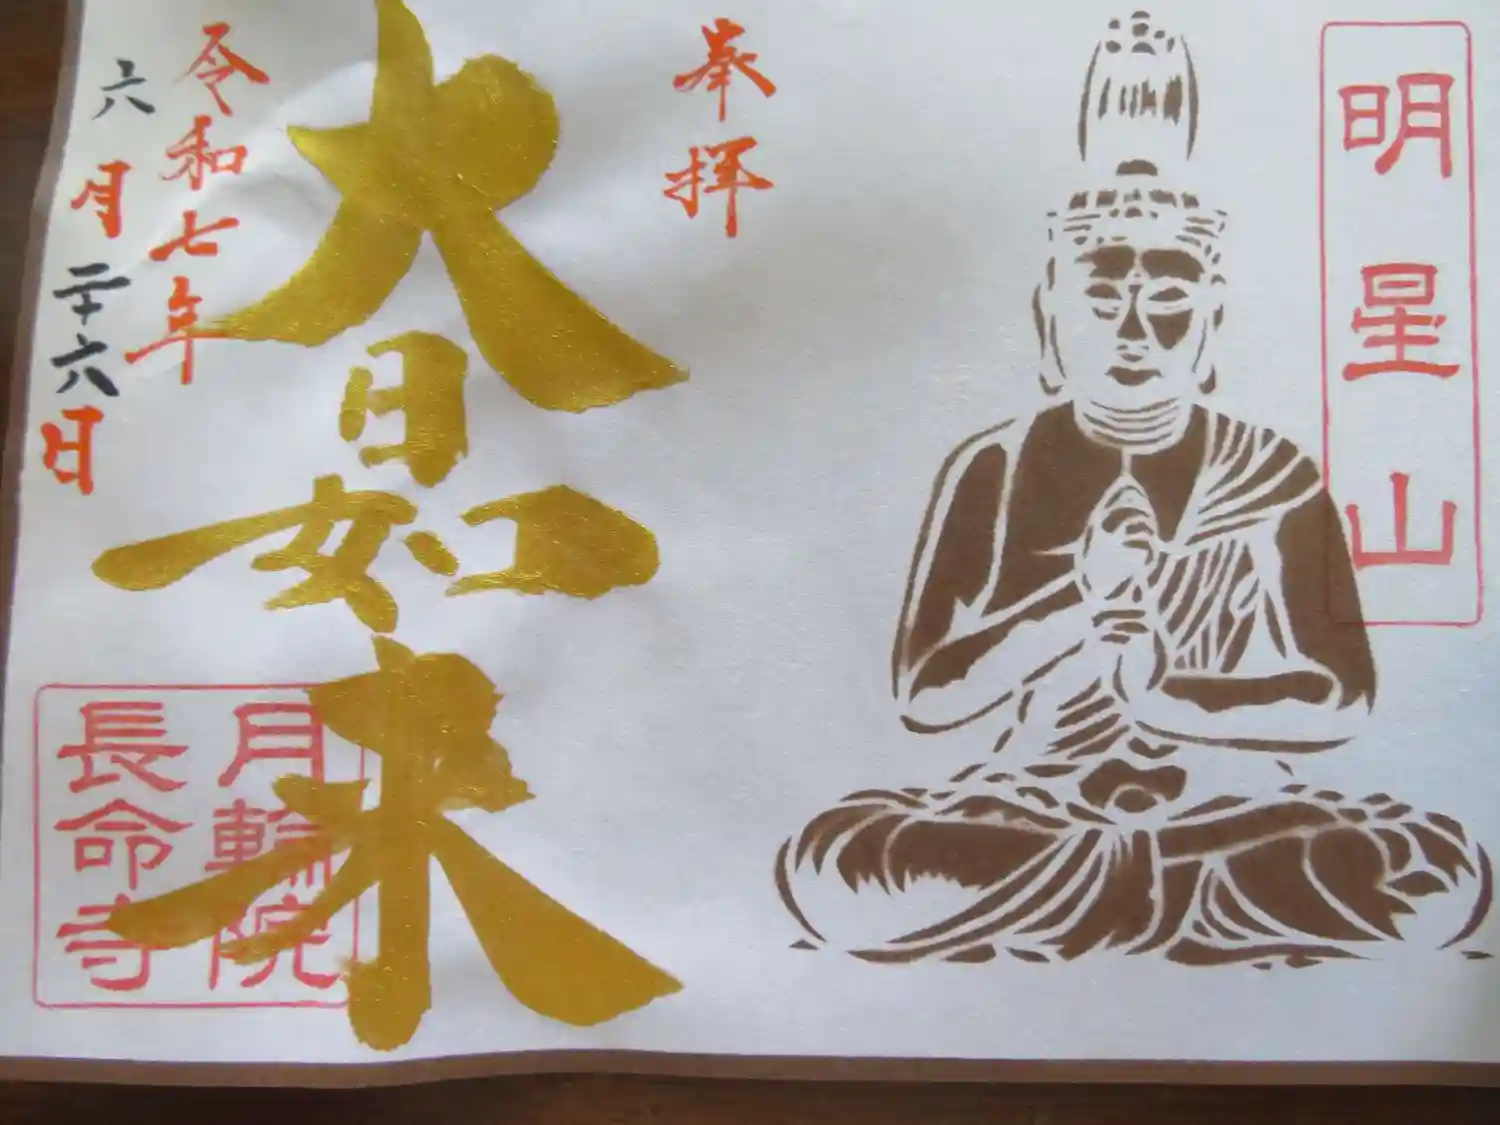 明星山
奉拝
大日如来
令和七年
六月二十六日
月輪院
長命寺